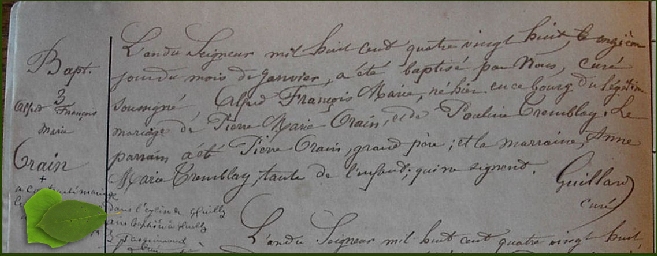 L'an du Seigneur mil huit cent quatre vingt huit, le onzième
jour du mois de Janvier, a été baptisé par Nous, curé
soussigné Alfred François Marie, né hier en ce bourg du légitime
mariage de Pierre Marie Orain, et de Pauline Tremblay; Le
parrain a été Pierre Orain, grand père; et la marraine, Anne
Marie Tremblay, tante de l'enfant qui ne signent.
Guillard
curé
Bapt.
3
Alfred François
Marie
Orain
+
a contracté mariage
dans l'église de
L'an du Seigneur mil huit cent quatre vingt huit,